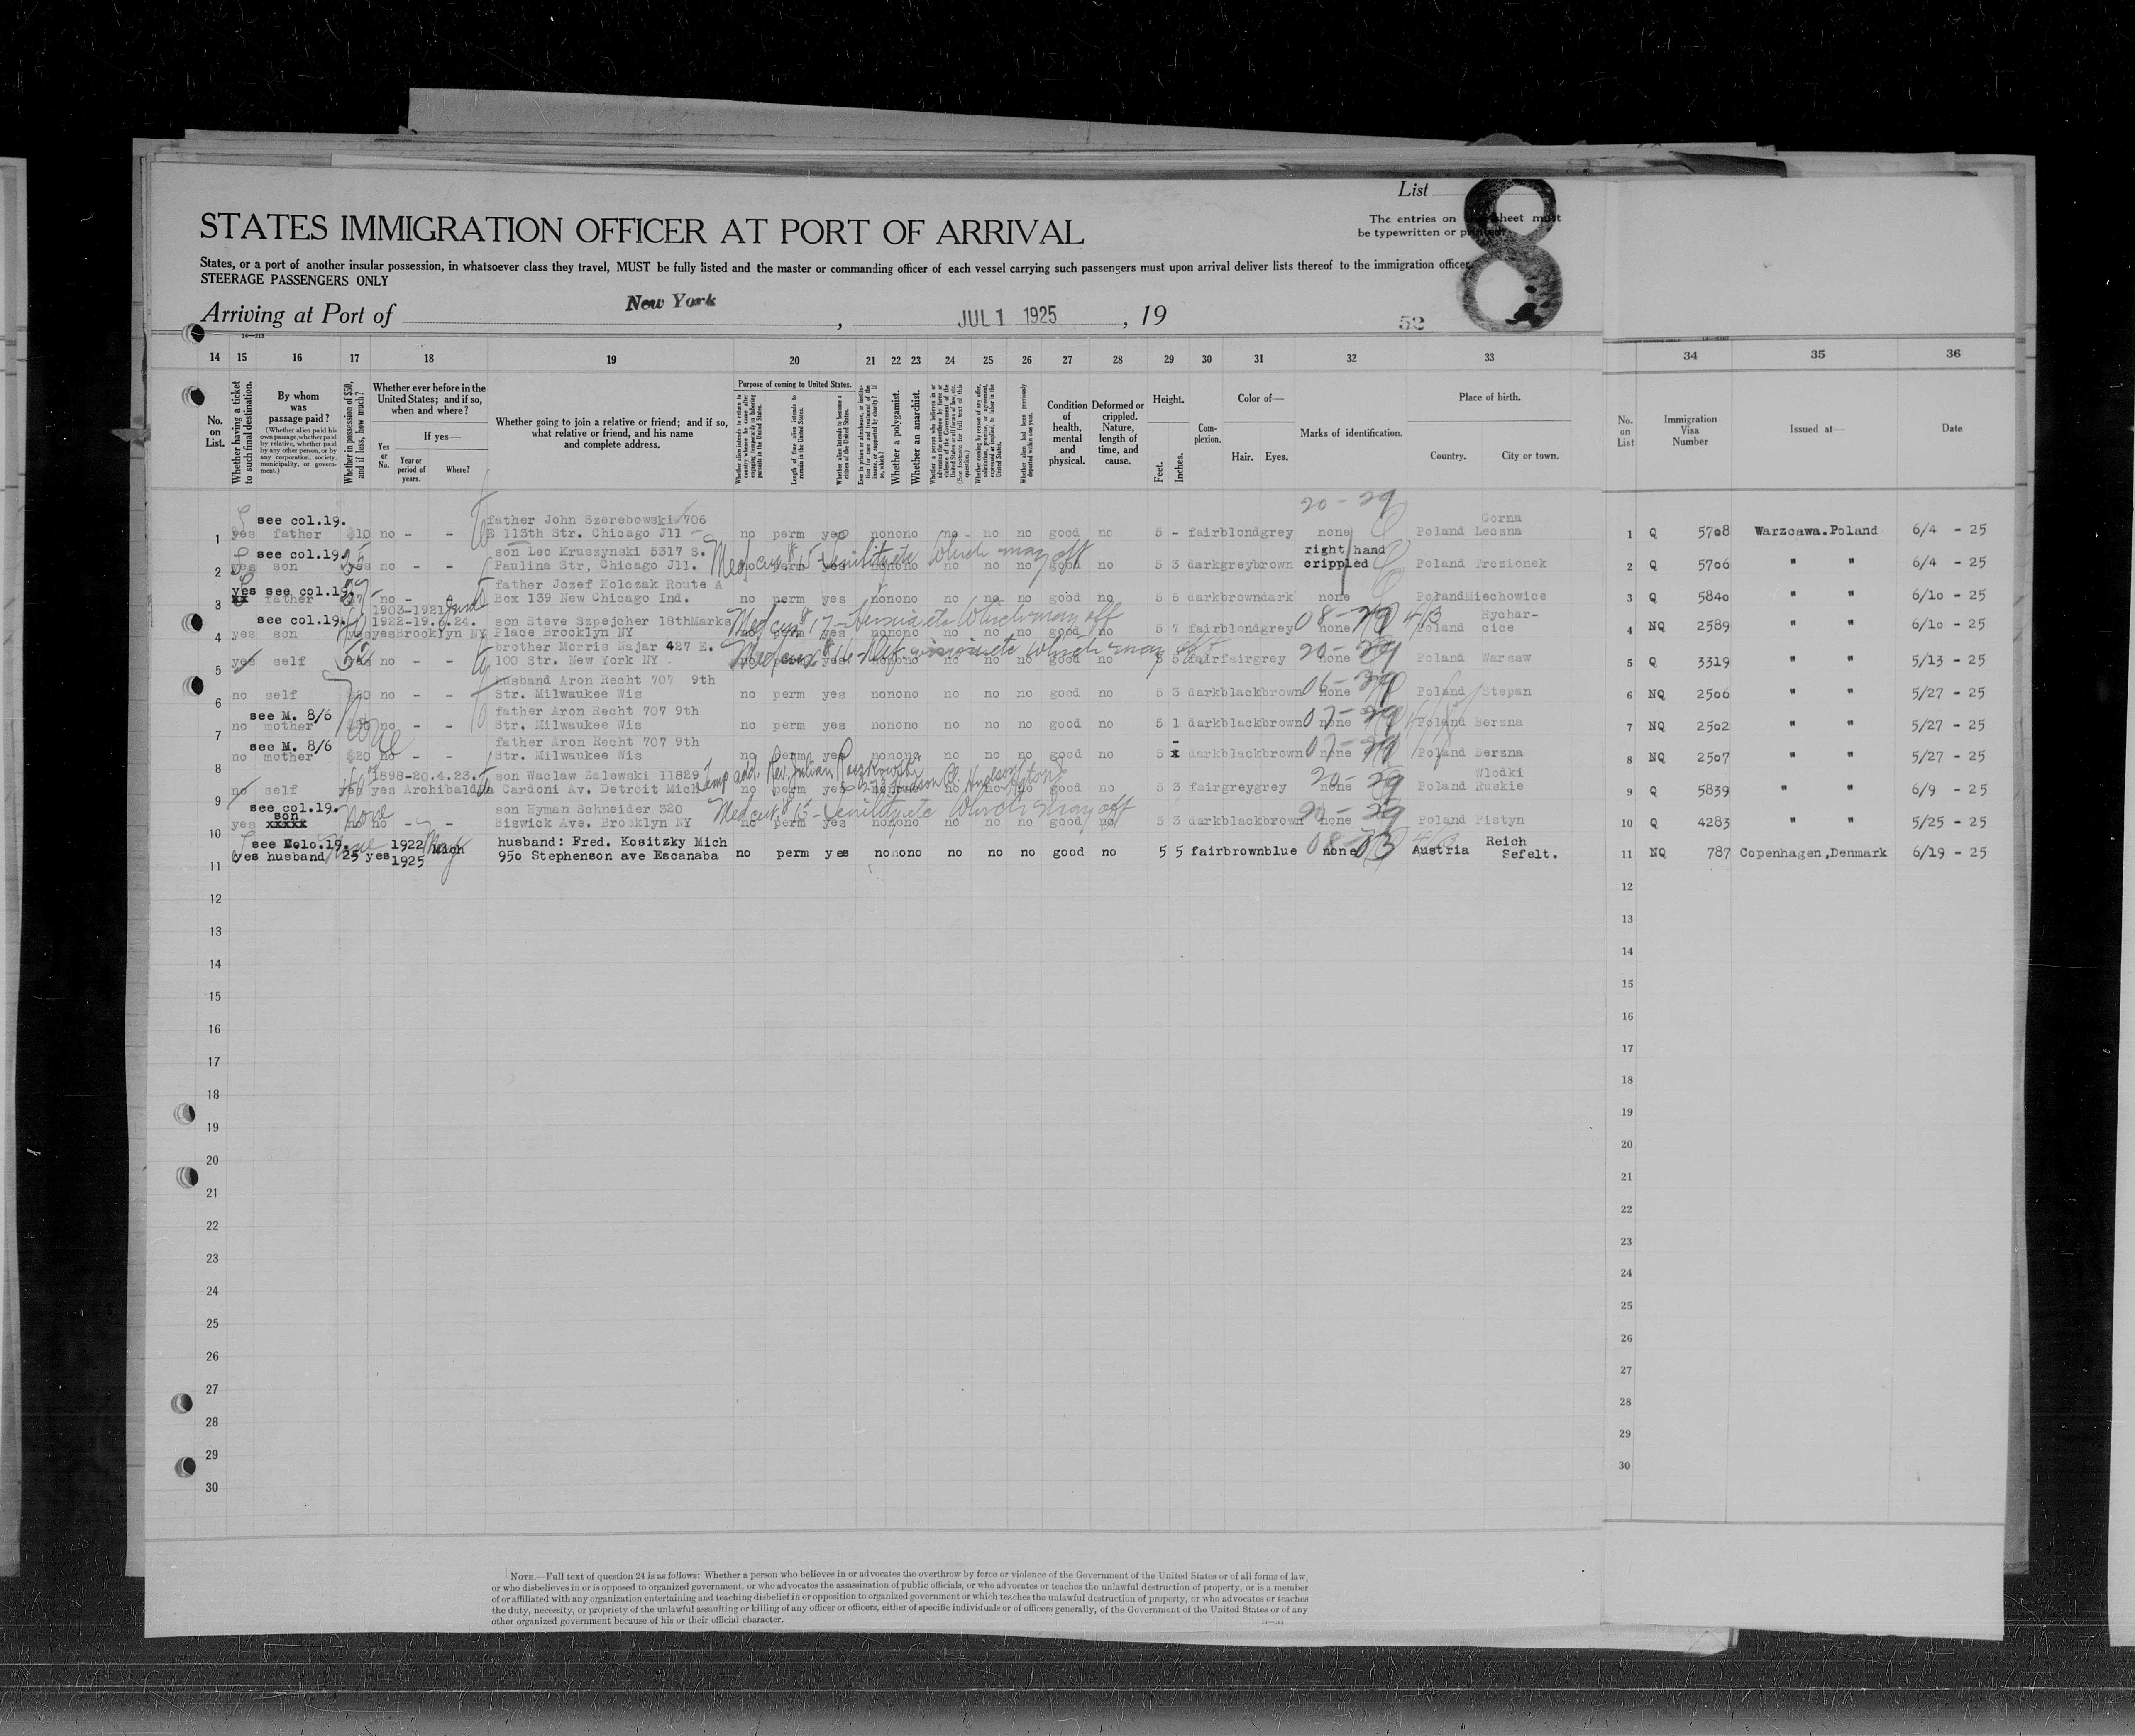 List 8
STATES IMMIGRATION OFFICER AT PORT OF ARRIVAL
The entries on sheet must
be typewritten or printed.
States, or a port of another insular possession, in whatsoever class they travel, MUST be fully listed and the master or commanding officer of each vessel carrying such passengers must upon arrival deliver lists thereof to the immigration officer
STEERAGE PASSENGERS ONLY
Arriving at Port of New York , JUL 1 1925 , 19
52
14 15 16 17 18 19 20 21 22 23 24 25 26 27 28 29 30 31 32 33 34 35 36
No. on List.
Whether having a ticket to such final destination.
By whom was passage paid?
(Whether alien paid his own passage, whether paid by relative, whether paid by any other person, or by any corporation, society, municipality, or government.)
Whether in possession of $50, and if less, how much?
Whether ever before in the United States; and if so, when and where?
If yes—
Yes or No.
Year or period of years.
Where?
Whether going to join a relative or friend; and if so, what relative or friend, and his name and complete address.
Purpose of coming to United States.
Length of time alien intends to remain in the United States.
Whether alien intends to become a citizen of the United States.
Whether a polygamist.
Whether an anarchist.
Condition of health, mental and physical.
Deformed or crippled. Nature, length of time, and cause.
Height.
Feet.
Inches.
Complexion.
Color of—
Hair. Eyes.
Marks of identification.
Place of birth.
Country. City or town.
No. on List
Immigration Visa Number
Issued at—
Date
20-29
see col.19. father John Szerebowski 706 Gorna
1 yes father $10 no - - E 113th Str. Chicago Jll no perm yes no no no no no no good no 5 - fair blond grey none Poland Leozna 1 Q 5708 Warzcawa.Poland 6/4 - 25
see col.19. son Leo Kruszynski 5317 S. right hand
2 yes son yes no - - Paulina Str, Chicago Jll. no perm yes no no no no no no good no 5 3 dark grey brown crippled Poland Trozionek 2 Q 5706 " " 6/4 - 25
yes see col.19. father Jozef Kolczak Route A
3 xx father no - Box 139 New Chicago Ind. no perm yes no no no no no no good no 5 6 dark brown dark none Poland Miechowice 3 Q 5840 " " 6/10 - 25
1903-1921
see col.19. 1922-19.6.24. son Steve Szpejcher 18thMarks 08-29 Rychar-
4 yes son yes yes Brooklyn NY Place Brooklyn NY no perm yes no no no no no no good no 5 7 fair blond grey none Poland cice 4 NQ 2589 " " 6/10 - 25
brother Morris Najar 427 E. 20-29
5 yes self no - - 100 Str. New York NY no perm yes no no no no no no good no 5 5 fair fair grey none Poland Warsaw 5 Q 3319 " " 5/13 - 25
husband Aron Recht 707 9th 06-29
6 no self no - - Str. Milwaukee Wis no perm yes no no no no no no good no 5 3 dark black brown none Poland Stepan 6 NQ 2506 " " 5/27 - 25
see M. 8/6 father Aron Recht 707 9th 07-29
7 no mother no - - Str. Milwaukee Wis no perm yes no no no no no no good no 5 1 dark black brown none Poland Berzna 7 NQ 2502 " " 5/27 - 25
see M. 8/6 father Aron Recht 707 9th 07-29
8 no mother $20 no - Str. Milwaukee Wis no perm yes no no no no no no good no 5 x dark black brown none Poland Berzna 8 NQ 2507 " " 5/27 - 25
1898-20.4.23. son Waclaw Zalewski 11829 Temp add. Rev. Julian 20-29 Wlodki
9 no self yes yes Archibald Pa Cardoni Av. Detroit Mich no perm yes no no no no no no good no 5 3 fair grey grey none Poland Ruskie 9 Q 5839 " " 6/9 - 25
see col.19. None son Hyman Schneider 320 20-29
son
10 yes xxxxx no no - - Siswick Ave. Brooklyn NY no perm yes no no no no no no good no 5 3 dark black brown none Poland Pistyn 10 Q 4283 " " 5/25 - 25
see Colo.19. 1922 husband: Fred. Kositzky Mich Reich
11 yes husband 25 yes 1925 Mich 950 Stephenson ave Escanaba no perm yes no no no no no no good no 5 5 fair brown blue none Austria Sefelt. 11 NQ 787 Copenhagen,Denmark 6/19 - 25
12 12
13 13
14 14
15 15
16 16
17 17
18 18
19 19
20 20
21 21
22 22
23 23
24 24
25 25
26 26
27 27
28 28
29 29
30 30
NOTE.—Full text of question 24 is as follows: Whether a person who believes in or advocates the overthrow by force or violence of the Government of the United States or of all forms of law,
or who disbelieves in or is opposed to organized government, or who advocates the assassination of public officials, or who advocates or teaches the unlawful destruction of property, or is a member
of or affiliated with any organization entertaining and teaching disbelief in or opposition to organized government or which teaches the unlawful destruction of property, or who advocates or teaches
the duty, necessity, or propriety of the unlawful assaulting or killing of any officer or officers, either of specific individuals or of officers generally, of the Government of the United States or of any
other organized government because of his or their official character.